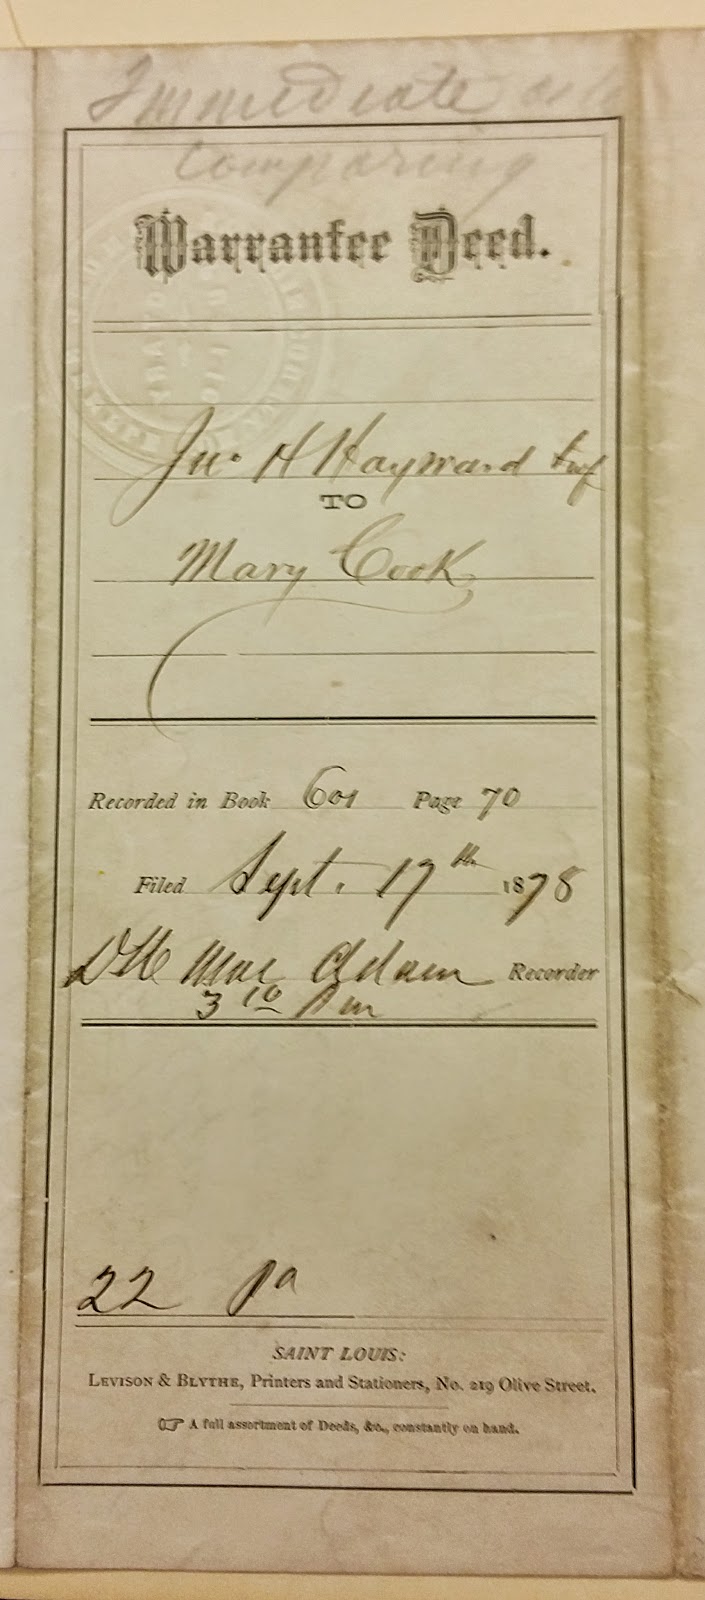 Immediate
Comparing
Warrantee Deed.
Jno. H Hayward & wf
TO
Mary Cook
Recorded in Book 601 Page 70
Filed Sept. 17th 1878
Mac Adam Recorder
3 10 Pm
22 Pa
SAINT LOUIS:
LEVISON & BLYTHE, Printers and Stationers, No. 219 Olive Street.
☞ A full assortment of Deeds, &c., constantly on hand.